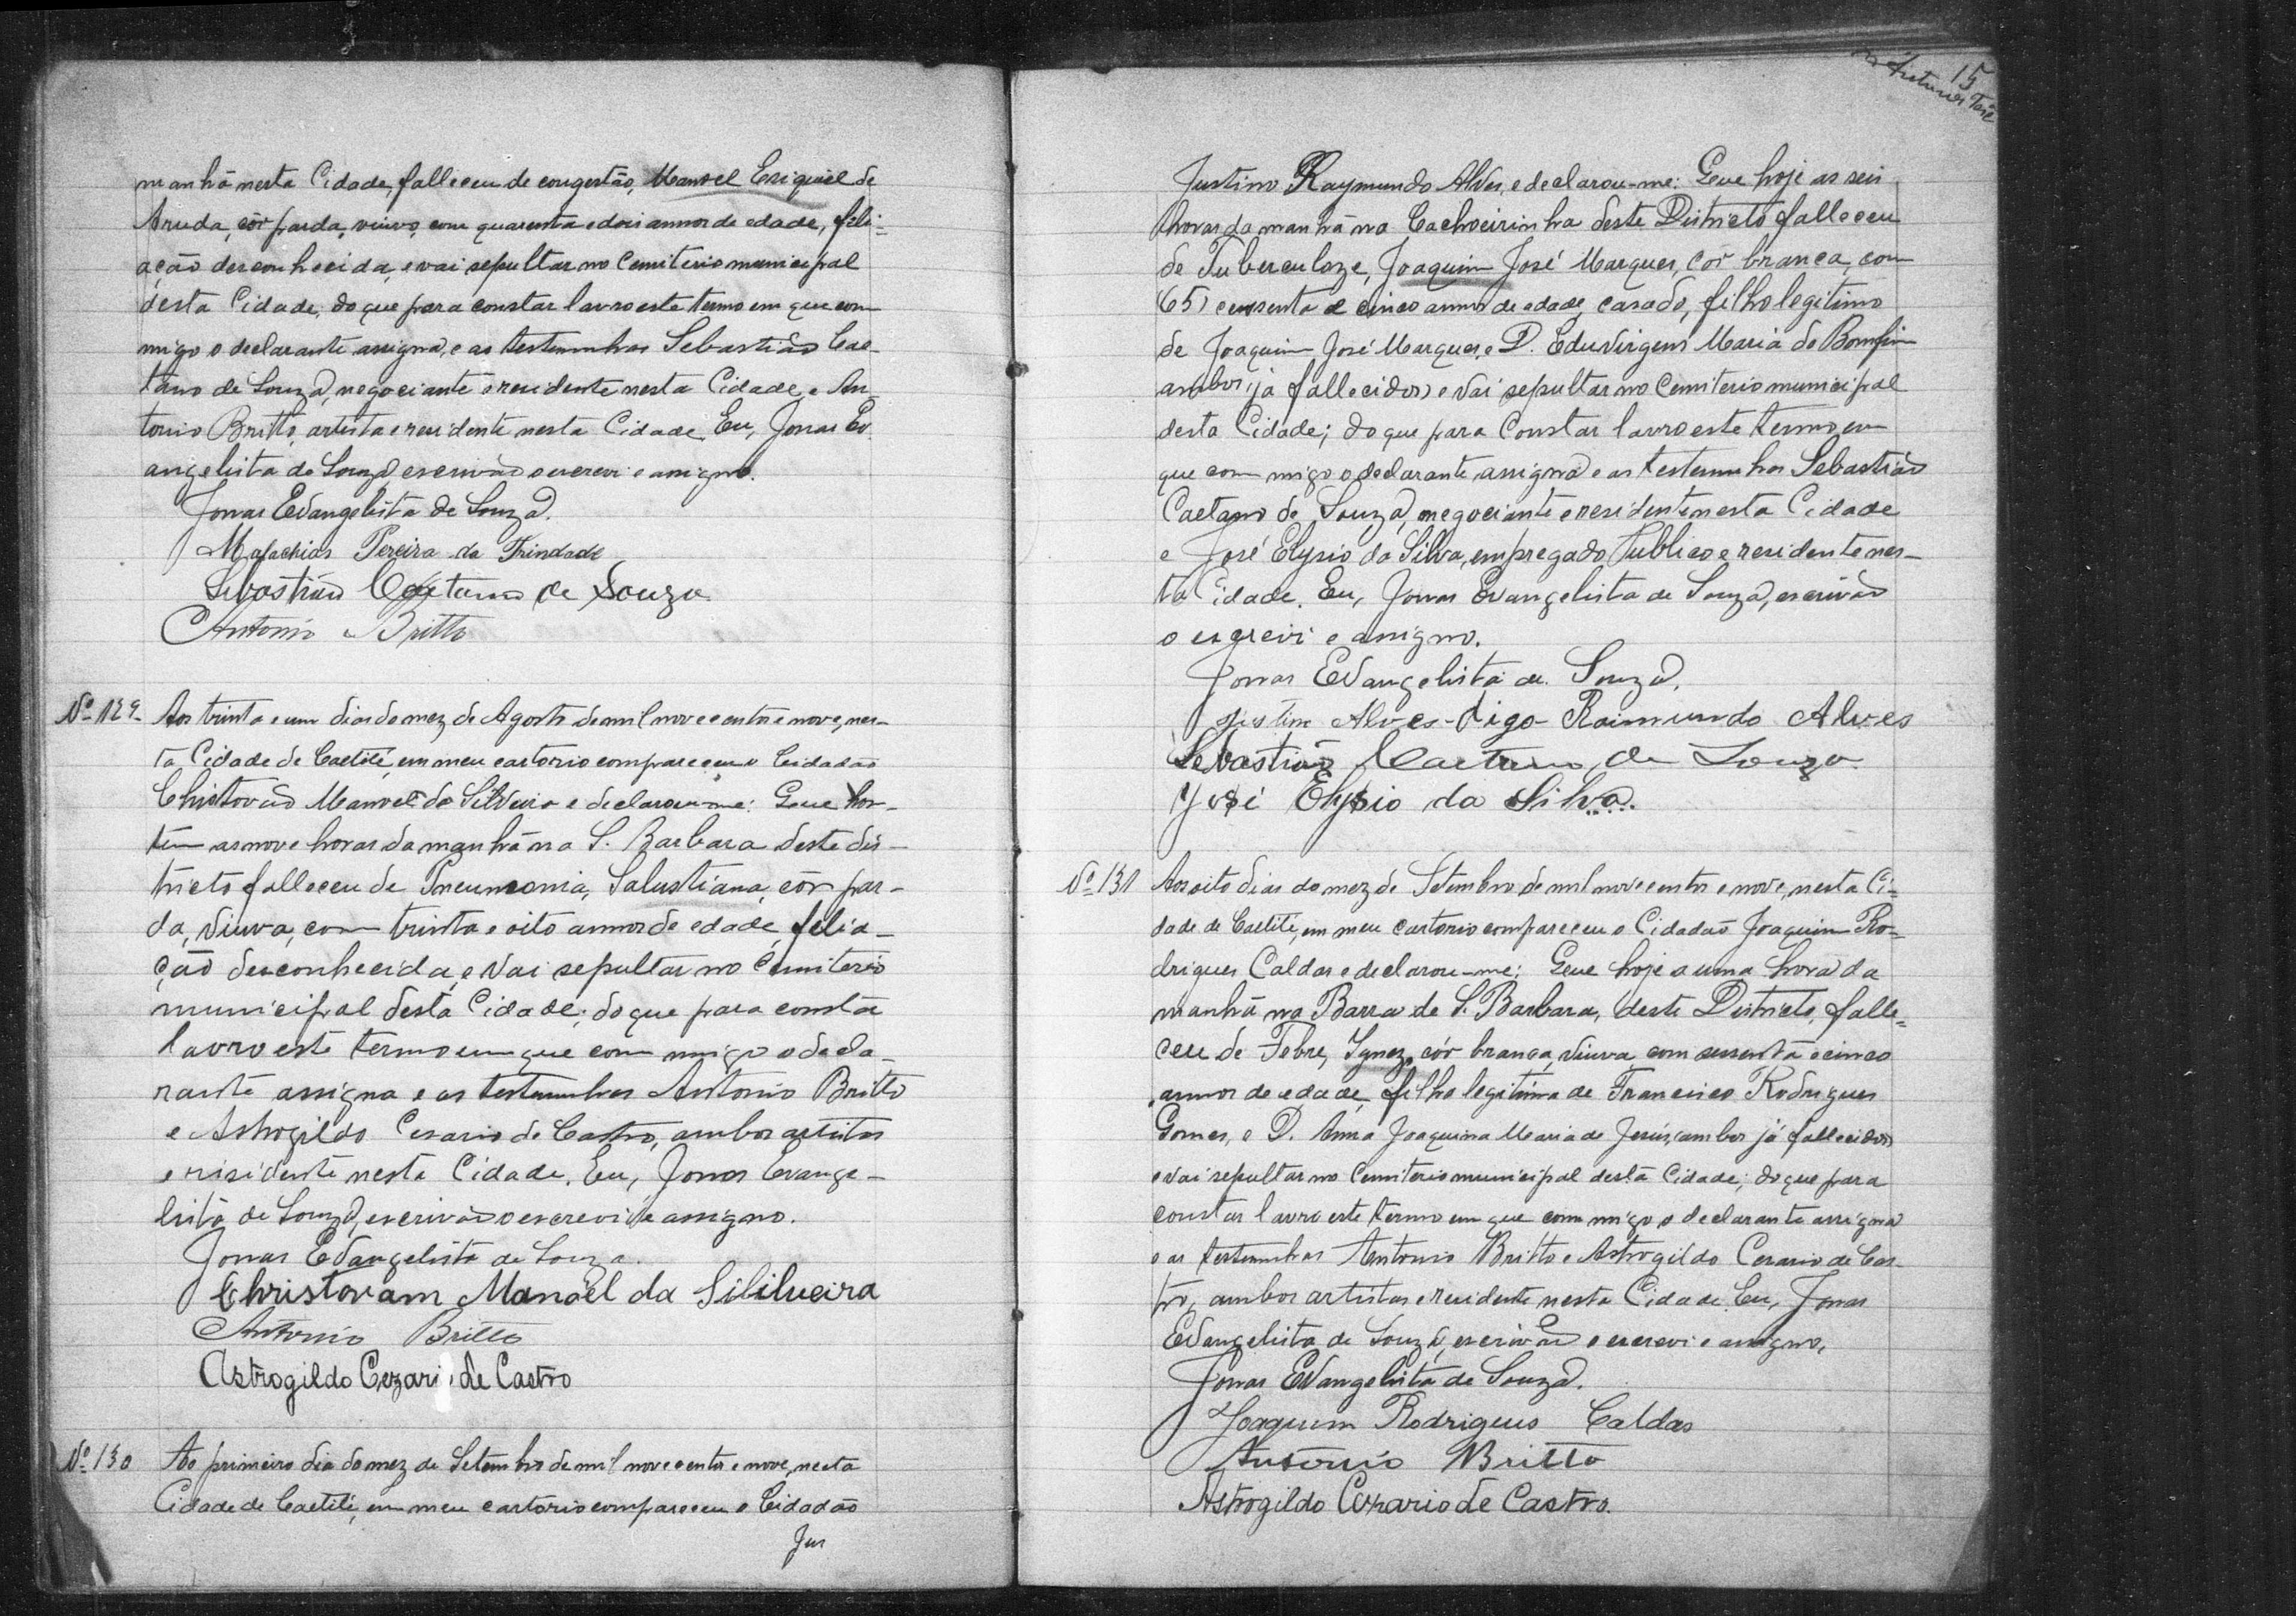 manhã nesta Cidade, falleceu de congestão, Manoel Eziquiel de
Aruda, côr parda, viuvo, com quarenta e dois annos de edade, fili=
ação desconhecida, e vai sepultar no Cemiterio municipal
desta Cidade, do que para constar lavro este termo em que com
migo o declarante assigna, e as testemunhas Sebastião Cae-
tano de Souza, negociante e residente nesta Cidade, e An
tonio Britto, artista e residente nesta Cidade. Eu, Jonas Ev
angelista de Souza, escrivão o escrevi e assigno.
Jonas Evangelista de Souza.
Malachias Pereira da Trindade
Sebastião Caetano de Souza
Antonio Britto
Nº 129 Aos trinta e um dias do mez de Agosto de mil novecentos e nove, nes-
ta Cidade de Caetité, em meu cartorio compareceu o Cidadão
Christovão Manoel da Silveira e declarou-me: Que hon-
tem as nove horas da manhã na S. Barbara deste dis-
tricto falleceu de Pneumonia, Salustiana, côr par-
da, viuva, com trinta e oito annos de edade, filia-
ção desconhecida, e vai sepultar no Cemiterio
municipal desta Cidade; do que para constar
lavro este termo em que com migo o decla-
rante assigna e as testemunhas Antonio Britto
e Astrogildo Cesario de Castro, ambos artistas
e risidente nesta Cidade. Eu, Jonas Evange-
lista de Souza, escrivão o escrevi e assigno.
Jonas Evangelista de Souza.
Christovam Manoel da Sililveira
Antonio Britto
Astrogildo Cezario de Castro
Nº 130 Ao primeiro dia do mez de Setembro de mil novecentos e nove, nesta
Cidade de Caetité, em meu cartorio compareceu o Cidadão
Jus
15
Justino Raymundo Alves, e declarou-me: Que hoje as seis
horas da manhã na Cachoeirinha deste Districto falleceu
de Tuberculoze, Joaquim José Marques, côr branca, com
(65) cessenta e cinco annos de edade, casado, filho legitimo
de Joaquim José Marques, e D. Eduvirgens Maria do Bomfim
ambos (já fallecidos) e vai sepultar no Cemiterio municipal
desta Cidade; do que para constar lavro este termo em
que com migo o declarante assigna e as testemunhas Sebastião
Caetano de Souza, negociante e residente nesta Cidade
e José Elysio da Silva, empregado Publico e residente nes-
ta Cidade. Eu, Jonas Evangelista de Souza, escrivão
o escrevi e assigno.
Jonas Evangelista de Souza.
Justino Alves - digo - Raimundo Alves
Sebastião Caetano de Souza
José Elysio da Silva.
Nº 131 Aos oito dias do mez de Setembro de mil novecentos e nove, nesta Ci-
dade de Caetité, em meu cartorio compareceu o Cidadão Joaquim Ro=
drigues Caldas e declarou-me: Que hoje a uma hora da
manhã na Barra de S. Barbara, deste Districto, falle=
ceu de Febre, Ignez, côr branca, viuva, com sessenta e cinco
annos de edade, filha legitima de Francisco Rodrigues
Gomes, e D. Anna Joaquina Maria de Jesús, (ambos já fallecidos)
e vai sepultar no Cemiterio municipal desta Cidade; do que para
constar lavro este termo em que com migo o declarante assigna
e as testemunhas Antonio Britto e Astrogildo Cesario de Cas-
tro, ambos artistas e residente nesta Cidade. Eu, Jonas
Evangelista de Souza, escrivão o escrevi e assigno,
Jonas Evangelista de Souza.
Joaquim Rodrigeus Caldas
Antonio Britto
Astrogildo Cezario de Castro.